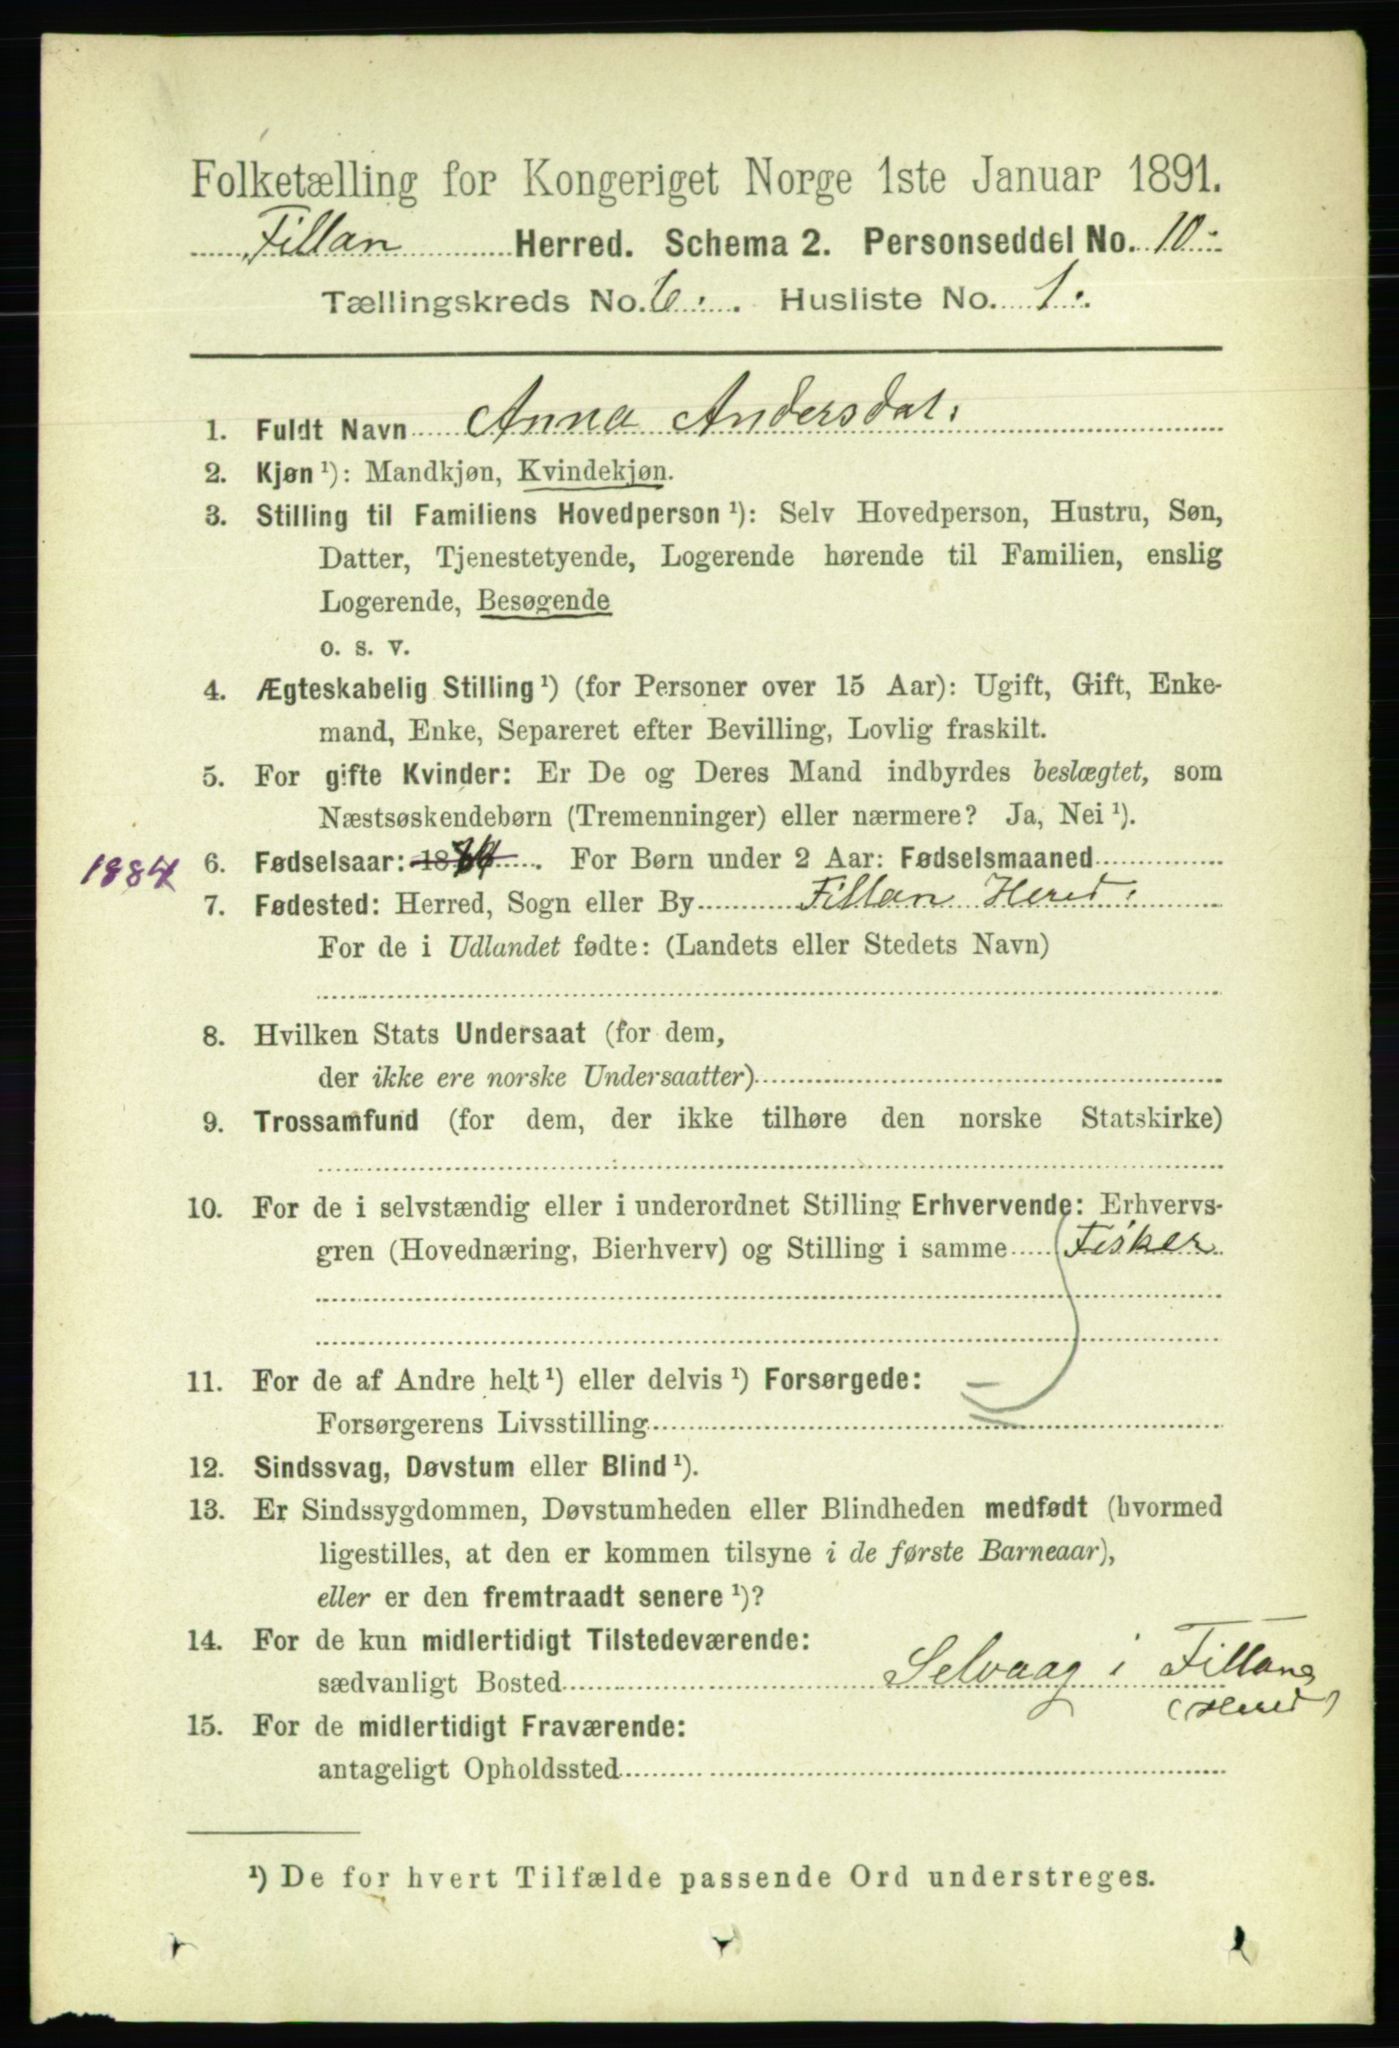 Folketælling for Kongeriget Norge 1ste Januar 1891.
Fillan Herred. Schema 2. Personseddel No. 10
Tællingskreds No. 6. Husliste No. 1.
1. Fuldt Navn Anna Andersdat.
2. Kjøn ¹): Mandkjøn, Kvindekjøn.
3. Stilling til Familiens Hovedperson ¹): Selv Hovedperson, Hustru, Søn,
Datter, Tjenestetyende, Logerende hørende til Familien, enslig
Logerende, Besøgende
o. s. v.
4. Ægteskabelig Stilling ¹) (for Personer over 15 Aar): Ugift, Gift, Enke-
mand, Enke, Separeret efter Bevilling, Lovlig fraskilt.
5. For gifte Kvinder: Er De og Deres Mand indbyrdes beslægtet, som
Næstsøskendebørn (Tremenninger) eller nærmere? Ja, Nei ¹).
1884 6. Fødselsaar: 18 . For Børn under 2 Aar: Fødselsmaaned
7. Fødested: Herred, Sogn eller By Fillan Hered
For de i Udlandet fødte: (Landets eller Stedets Navn)
8. Hvilken Stats Undersaat (for dem,
der ikke ere norske Undersaatter)
9. Trossamfund (for dem, der ikke tilhøre den norske Statskirke)
10. For de i selvstændig eller i underordnet Stilling Erhvervende: Erhvervs-
gren (Hovednæring, Bierhverv) og Stilling i samme Fisker
11. For de af Andre helt ¹) eller delvis ¹) Forsørgede:
Forsørgerens Livsstilling
12. Sindssvag, Døvstum eller Blind ¹).
13. Er Sindssygdommen, Døvstumheden eller Blindheden medfødt (hvormed
ligestilles, at den er kommen tilsyne i de første Barneaar),
eller er den fremtraadt senere ¹)?
14. For de kun midlertidigt Tilstedeværende:
sædvanligt Bosted Selvaag i Fillans
(Hered)
15. For de midlertidigt Fraværende:
antageligt Opholdssted
¹) De for hvert Tilfælde passende Ord understreges.